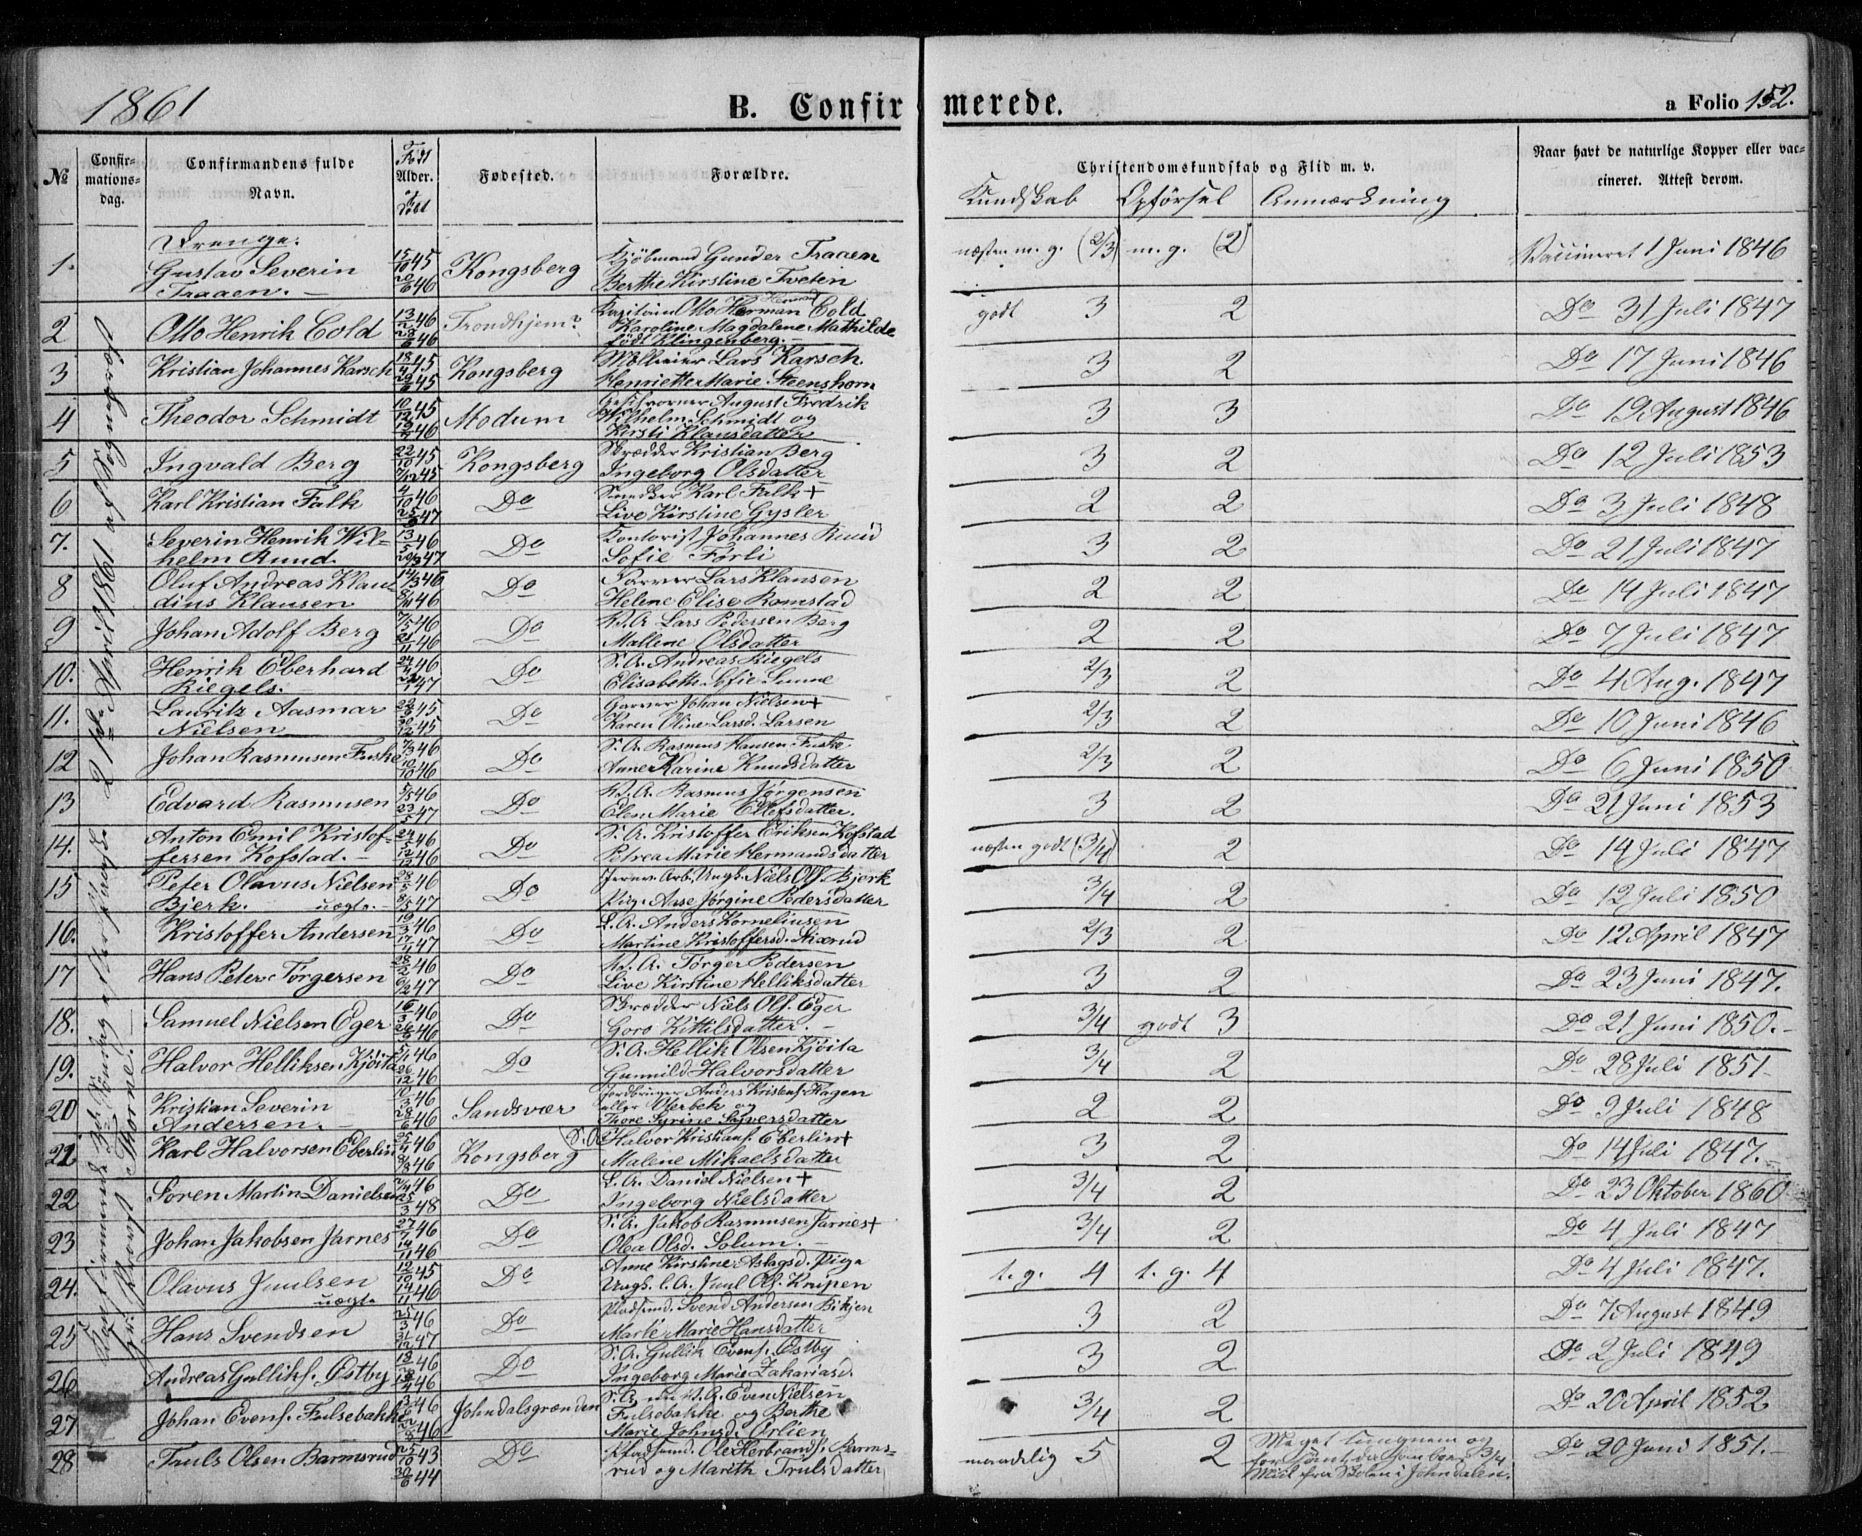 1861
B. Confirmerede.
a Folio 152.
№ Confirmationsdag. Confirmandens fulde Navn. Født Alder. Døbt Fødested. Forældre. Christendomskundskab og Flid m. v. Naar havt de naturlige Kopper eller vaccineret. Attest derom.
Kundskab Opførsel Anmærkning
21de April 1861 af Sognepræst
Hr. Provst Thorne.
Drenge:
1. Gustav Severin Traaen. 15/10 45 46 Kongsberg Kjøbmand Gunder Traaen Berthe Kirstine Tveten næsten m. g. (2/3) m. g. (2) Vaccineret 1 Juni 1846
2 Otto Henrik Cold 13/2 46 46 Trondhjem? Kapitain Otto Herman Cold Karoline Magdalene Mathilde født Klingenberg. godt 3 2 Do 31 Juli 1847
3 Kristian Johannes Karsch 18/4 45 45 Kongsberg Lars Karsch Henriette Marie Steenshorn 3 2 Do 17 Juni 1846
4 Theodor Schmidt 10/12 45 46 Modum August Fredrik Wilhelm Schmidt og Kirsti Klausdatter 3 3 Do 19 August 1846
5 Ingvald Berg 22/10 45 45 Kongsberg Skrædder Kristian Berg Ingeborg Olsdatter 3 2 Do 12 Juli 1853
6 Karl Kristian Falk 4/10 46 47 Do Snedker Karl Falk + Live Kirstine Gysler 2 2 Do 3 Juli 1848
7. Severin Henrik Wilhelm Ruud. 13/5 46 47 Do Kontorist Johannes Ruud Sofie Førli 3 2 Do 21 Juli 1847
8 Oluf Andreas Klaudius Klausen 14/3 46 46 Do Farver Lars Klausen Helene Elise Romstad 2 2 Do 14 Juli 1847
9 Johan Adolf Berg 46 46 Do Lars Pedersen Berg Mallene Olsdatter 2 2 Do 7 Juli 1847
10. Henrik Eberhard Riegels. 46 47 Do S. A. Andreas Riegels Elisabeth Sofie Sunne 2/3 2 Do 4 Aug. 1847
11. Lauritz Aasmar Nielsen 45 45 Do Garver Johan Nielsen + Karen Oline Larsd. Larsen 2/3 2 Do 10 Juni 1846
12 Johan Rasmusen Fiske 46 10/10 46 Do S. A. Rasmus Hansen Fiske Anne Karine Knudsdatter 2/3 2 Do 6 Juni 1850
13 Edvard Rasmusen 46 47 Do Rasmus Jørgensen Elen Marie Ellefsdatter. 3 2 Do 21 Juni 1853
14. Anton Emil Kristoffersen Kofstad. 46 12/12 46 Do S. A. Kristoffer Eriksen Kofstad Petrea Marie Hermandsdatter næsten godt (3/4) 2 Do 14 Juli 1847
15 Peter Olavus Nielsen Bjerk. uægte. 46 47 Do Arb. Ungk. Niels Ols. Bjørk Pig. Anne Jørgine Pedersdatter 3/4 2 Do 12 Juli 1850
16. Kristoffer Andersen 46 47 Do L. A. Anders Korneliusen Martine Kristoffersd. Skjærud 2/3 2 Do 12 April 1847
17 Hans Peter Tørgersen 28/2 46 47 Do Tørger Pedersen Live Kirstine Helliksdatter 3 2 Do 23 Juni 1847.
18. Samuel Nielsen Eger 16/3 46 46 Do Skrædder Niels Ols. Eger Goro Kittilsdatter. 3/4 godt 3 Do 21 Juni 1850.
19. Halvor Helliksen Kjøita 46 26/12 46 Do S. A. Hellik Olsen Kjøita Gunnild Halvorsdatter 3/4 2 Do 28 Juli 1851
20 Kristian Severin Andersen. 46 46 Sandsvær Jordbruger Anders Kristens. Hagen eller Overbek og Thore Syrine Syversdatter 2 2 Do 9 Juli 1848
21 Karl Halvorsen Eberlin 46 46 Kongsberg Halvor Kristians. Eberlin + Malene Mikaelsdatter 3 2 Do 14 Juli 1847.
22 Søren Martin Danielsen 46 48 Do L. A. Daniel Nielsen + Ingeborg Nielsdatter 3/4 2 Do 23 Oktober 1860
23 Johan Jakobsen Jarnes 46 14/11 46 Do S. A. Jakob Rasmusen Jarnes + Olea Olsd. Solum. 3/4 2 Do 4 Juli 1847
24. Olavus Juulsen uægte 12/10 45 46 Do Anne Kirstine Aslagsd. Pige Ungk. L. A. Juul Ols. Krupen t. g. 4 t. g. 4 Do 4 Juli 1847.
25 Hans Svendsen 46 47 Do Pladsmd. Svend Andersen Marte Marie Hansdatter 3 2 Do 7 August 1849
26 Andreas Gulliks. Østby 46 46 Do S. A. Gullik Evens. Østby Ingeborg Marie Zakariasd. 3 2 Do 2 Juli 1849
27 Johan Evens. Fulsebakke 46 46 Johndalsgrænden Even Nielsen Fulsebakke og Berthe Marie Johnsd. Ørlien 3/4 2 Do 20 April 1852
28 Truls Olsen Barmsrud 25/10 43 44 Do Pladsmd. Ole Herbrands. Barmsrud og Marith Trulsdatter maadelig 5 2 Meget tungnem og da han boer 3/4 Miil fra Skolen i Johndalen. Do 20 Juni 1851.